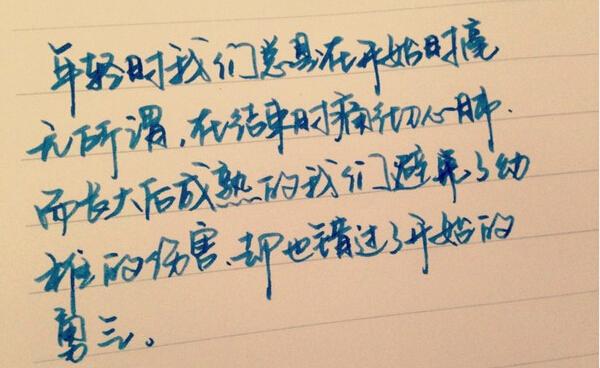 年轻时我们总是在开始时毫
无所谓,在结束时痛彻心肺.
而长大后成熟的我们避免了幼
稚的伤害,却也错过了开始的
勇气。